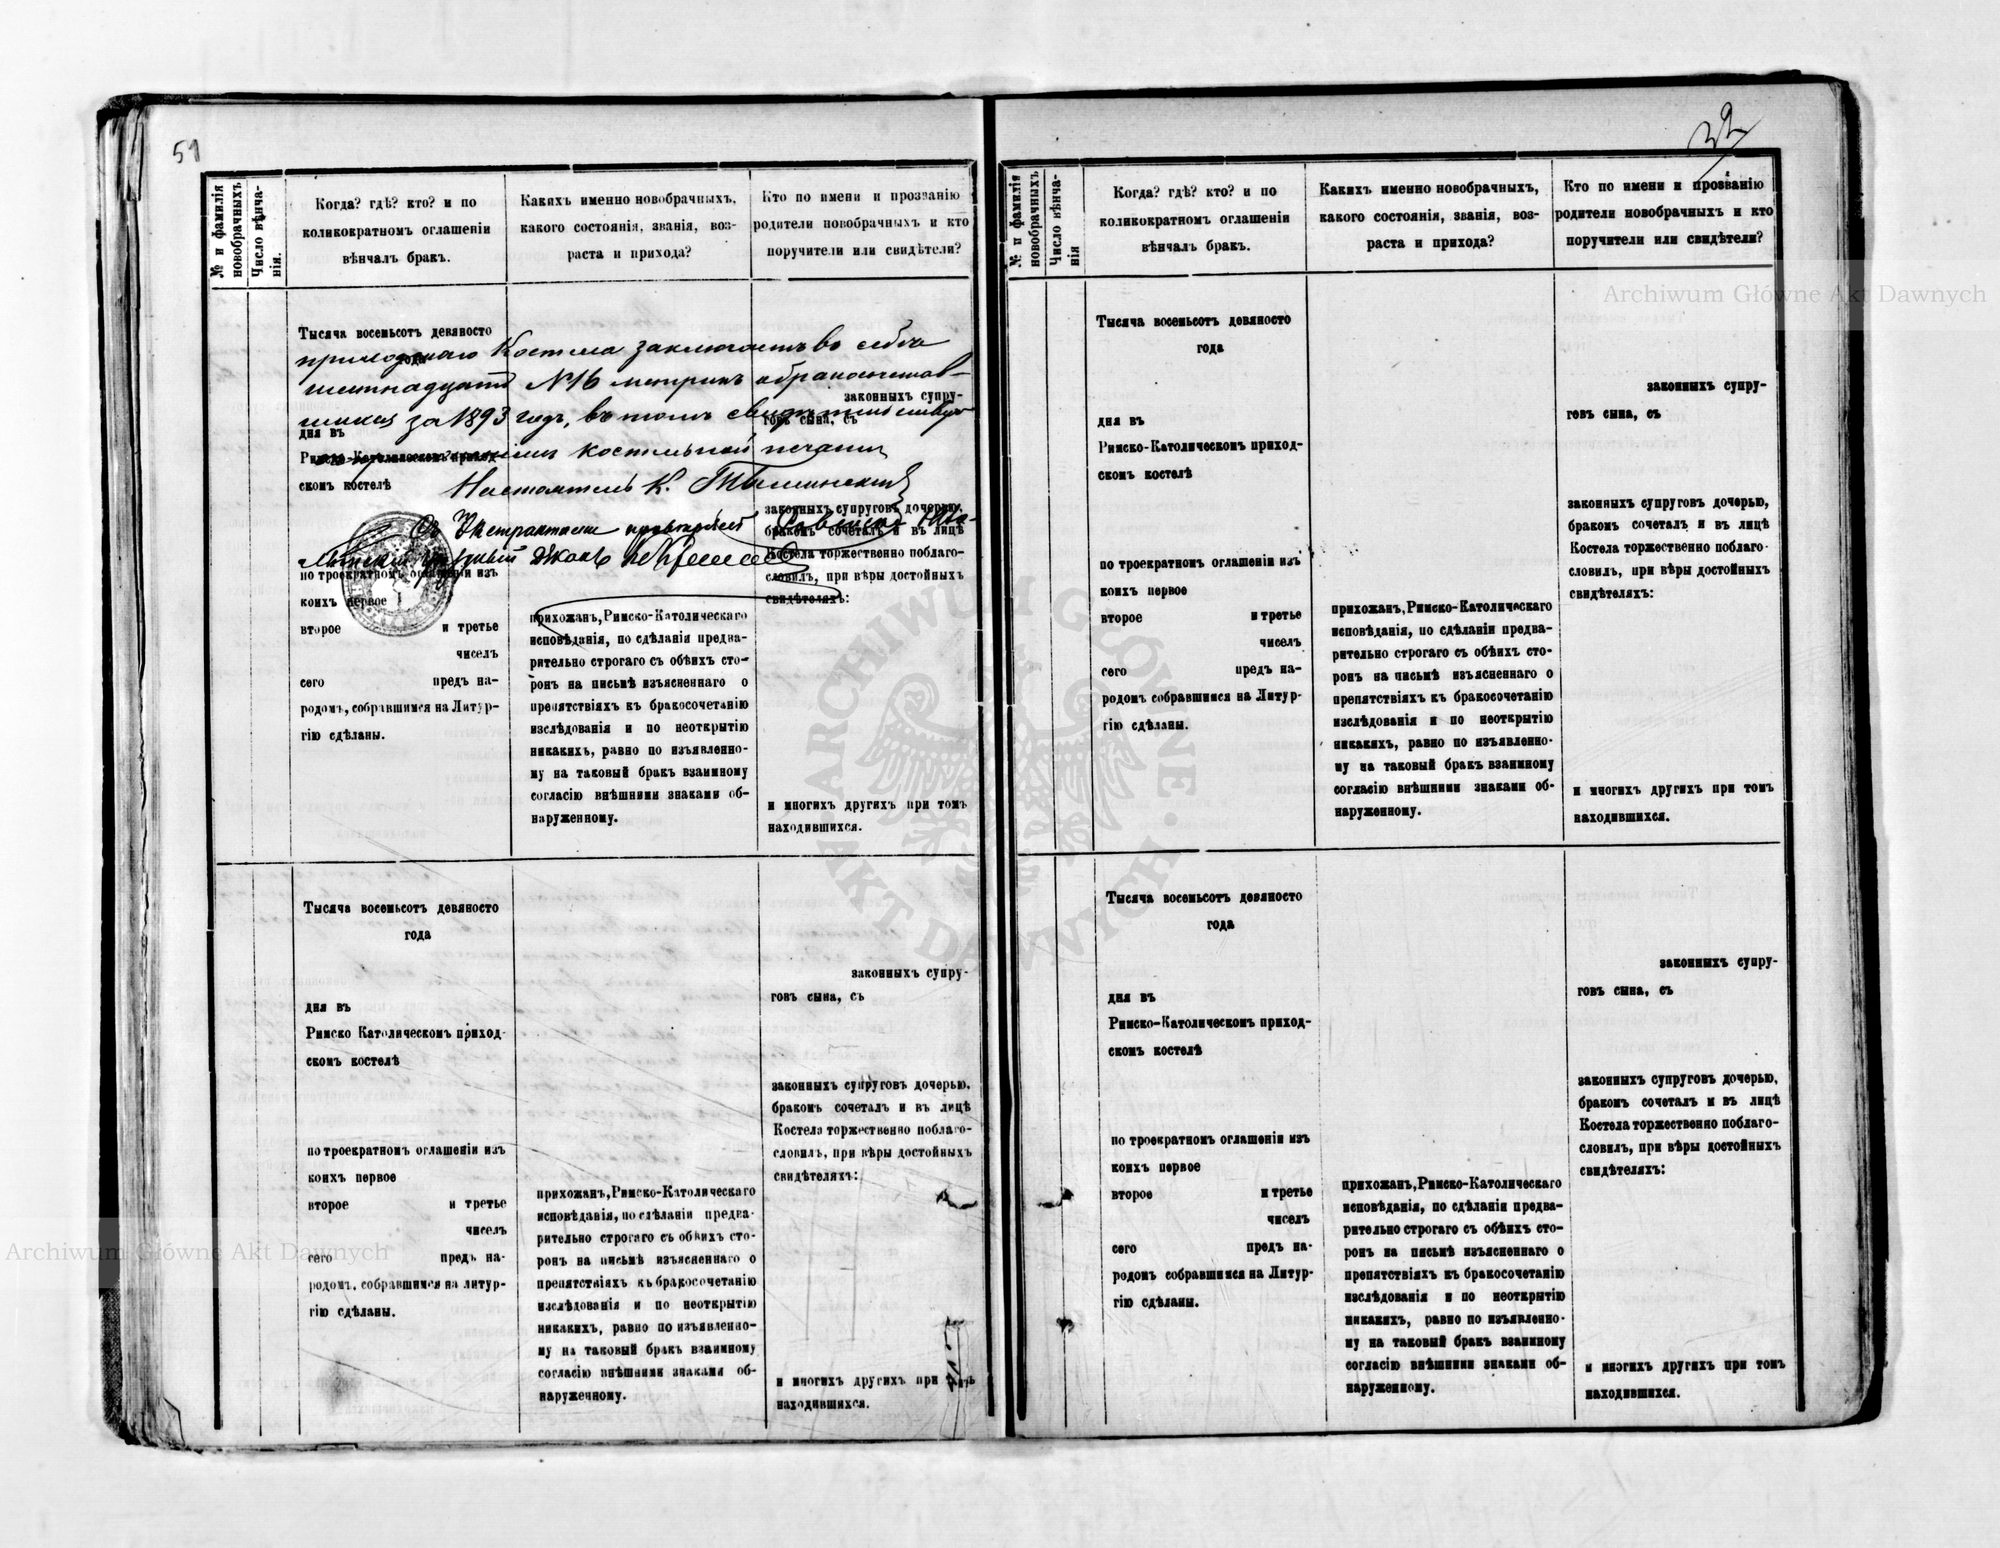 51
№ и фамилія новобрачныхъ
Число вѣнчанія.
Когда? гдѣ? кто? и по
коликократномъ оглашеніи
вѣнчалъ бракъ.
Какихъ именно новобрачныхъ,
какого состоянія, званія, воз-
раста и прихода?
Кто по имени и прозванію
родители новобрачныхъ и кто
поручители или свидѣтели?
Тысяча восемьсотъ девяносто
года
приходскаго Костела заключаетъ въ себѣ
шестнадцать №16 метрикъ о бракосочетав-
шихся за 1893 годъ, въ томъ
костельной печати
Настоятель К.
Съ Экстрактомъ
Деканъ
дня въ
Римско-Католическомъ приход-
скомъ костелѣ
по троекратномъ оглашеніи изъ
коихъ первое
второе и третье
чиселъ
сего предъ на-
родомъ, собравшимся на Литур-
гію сдѣланы.
прихожан, Римско-Католическаго
исповѣданія, по сдѣланіи предва-
рительно строгаго съ обѣихъ сто-
ронъ на письмѣ изъясненнаго о
препятствіяхъ къ бракосочетанію
изслѣдованія и по неоткрытію
никакихъ, равно по изъявленно-
му на таковый бракъ взаимному
согласію внѣшними знаками об-
наруженному.
законныхъ супру-
говъ сына, съ
законныхъ супруговъ дочерью,
бракомъ сочеталъ и въ лицѣ
Костела торжественно поблаго-
словилъ, при вѣры достойныхъ
свидѣтеляхъ:
и многихъ другихъ при томъ
находившихся.
Тысяча восемьсотъ девяносто
года
дня въ
Римско Католическомъ приход-
скомъ костелѣ
по троекратномъ оглашеніи изъ
коихъ первое
второе и третье
чиселъ
сего предъ на-
родомъ, собравшимся на литур-
гію сдѣланы.
прихожан, Римско-Католическаго
исповѣданія, по сдѣланіи предва-
рительно строгаго съ обѣихъ сто-
ронъ на письмѣ изъясненнаго о
препятствіяхъ къ бракосочетанію
изслѣдованія и по неоткрытію
никакихъ, равно по изъявленно-
му на таковый бракъ взаимному
согласію внѣшними знаками об-
наруженному.
законныхъ супру-
говъ сына, съ
законныхъ супруговъ дочерью,
бракомъ сочеталъ и въ лицѣ
Костела торжественно поблаго-
словилъ, при вѣры достойныхъ
свидѣтеляхъ:
и многихъ другихъ при томъ
находившихся.
№ и фамилія новобрачныхъ
Число вѣнчанія
Когда? гдѣ? кто? и по
коликократномъ оглашеніи
вѣнчалъ бракъ.
Какихъ именно новобрачныхъ,
какого состоянія, званія, воз-
раста и прихода?
Кто по имени и прозванію
родители новобрачныхъ и кто
поручители или свидѣтели?
Тысяча восемьсотъ девяносто
года
дня въ
Римско-Католическомъ приход-
скомъ костелѣ
по троекратномъ оглашеніи изъ
коихъ первое
второе и третье
чиселъ
сего предъ на-
родомъ собравшимся на Литур-
гію сдѣланы.
прихожан, Римско-Католическаго
исповѣданія, по сдѣланіи предва-
рительно строгаго съ обѣихъ сто-
ронъ на письмѣ изъясненнаго о
препятствіяхъ къ бракосочетанію
изслѣдованія и по неоткрытію
никакихъ, равно по изъявленно-
му на таковый бракъ взаимному
согласію внѣшними знаками об-
наруженному.
законныхъ супру-
говъ сына, съ
законныхъ супруговъ дочерью,
бракомъ сочеталъ и въ лицѣ
Костела торжественно поблаго-
словилъ, при вѣры достойныхъ
свидѣтеляхъ:
и многихъ другихъ при томъ
находившихся.
Тысяча восемьсотъ девяносто
года
дня въ
Римско-Католическомъ приход-
скомъ костелѣ
по троекратномъ оглашеніи изъ
коихъ первое
второе и третье
чиселъ
сего предъ на-
родомъ собравшимся на Литур-
гію сдѣланы.
прихожан, Римско-Католическаго
исповѣданія, по сдѣланіи предва-
рительно строгаго съ обѣихъ сто-
ронъ на письмѣ изъясненнаго о
препятствіяхъ къ бракосочетанію
изслѣдованія и по неоткрытію
никакихъ, равно по изъявленно-
му на таковый бракъ взаимному
согласію внѣшними знаками об-
наруженному.
законныхъ супру-
говъ сына, съ
законныхъ супруговъ дочерью,
бракомъ сочеталъ и въ лицѣ
Костела торжественно поблаго-
словилъ, при вѣры достойныхъ
свидѣтеляхъ:
и многихъ другихъ при томъ
находившихся.
Archiwum Główne Akt Dawnych
Archiwum Główne Akt Dawnych
ARCHIWUM GŁÓWNE · AKT DAWNYCH ·